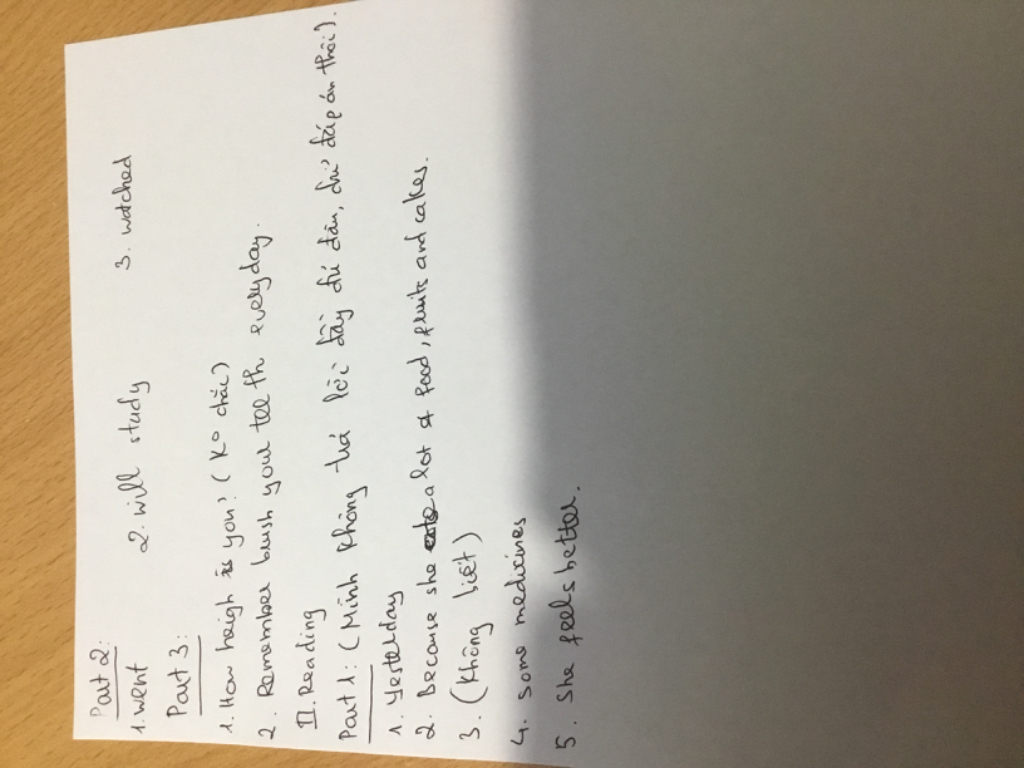 Part 2:
1. went 2. will study 3. watched
Part 3:
1. How heigh is you? (K° chắc)
2. Remember brush your teeth everyday.
II. Reading
Part 1: (Mình không trả lời đầy đủ đâu, chỉ đáp án thôi).
1. Yesterday
2. Because she a lot of food, fruits and cakes.
3. (Không biết)
4. Some medicines
5. She feels better.